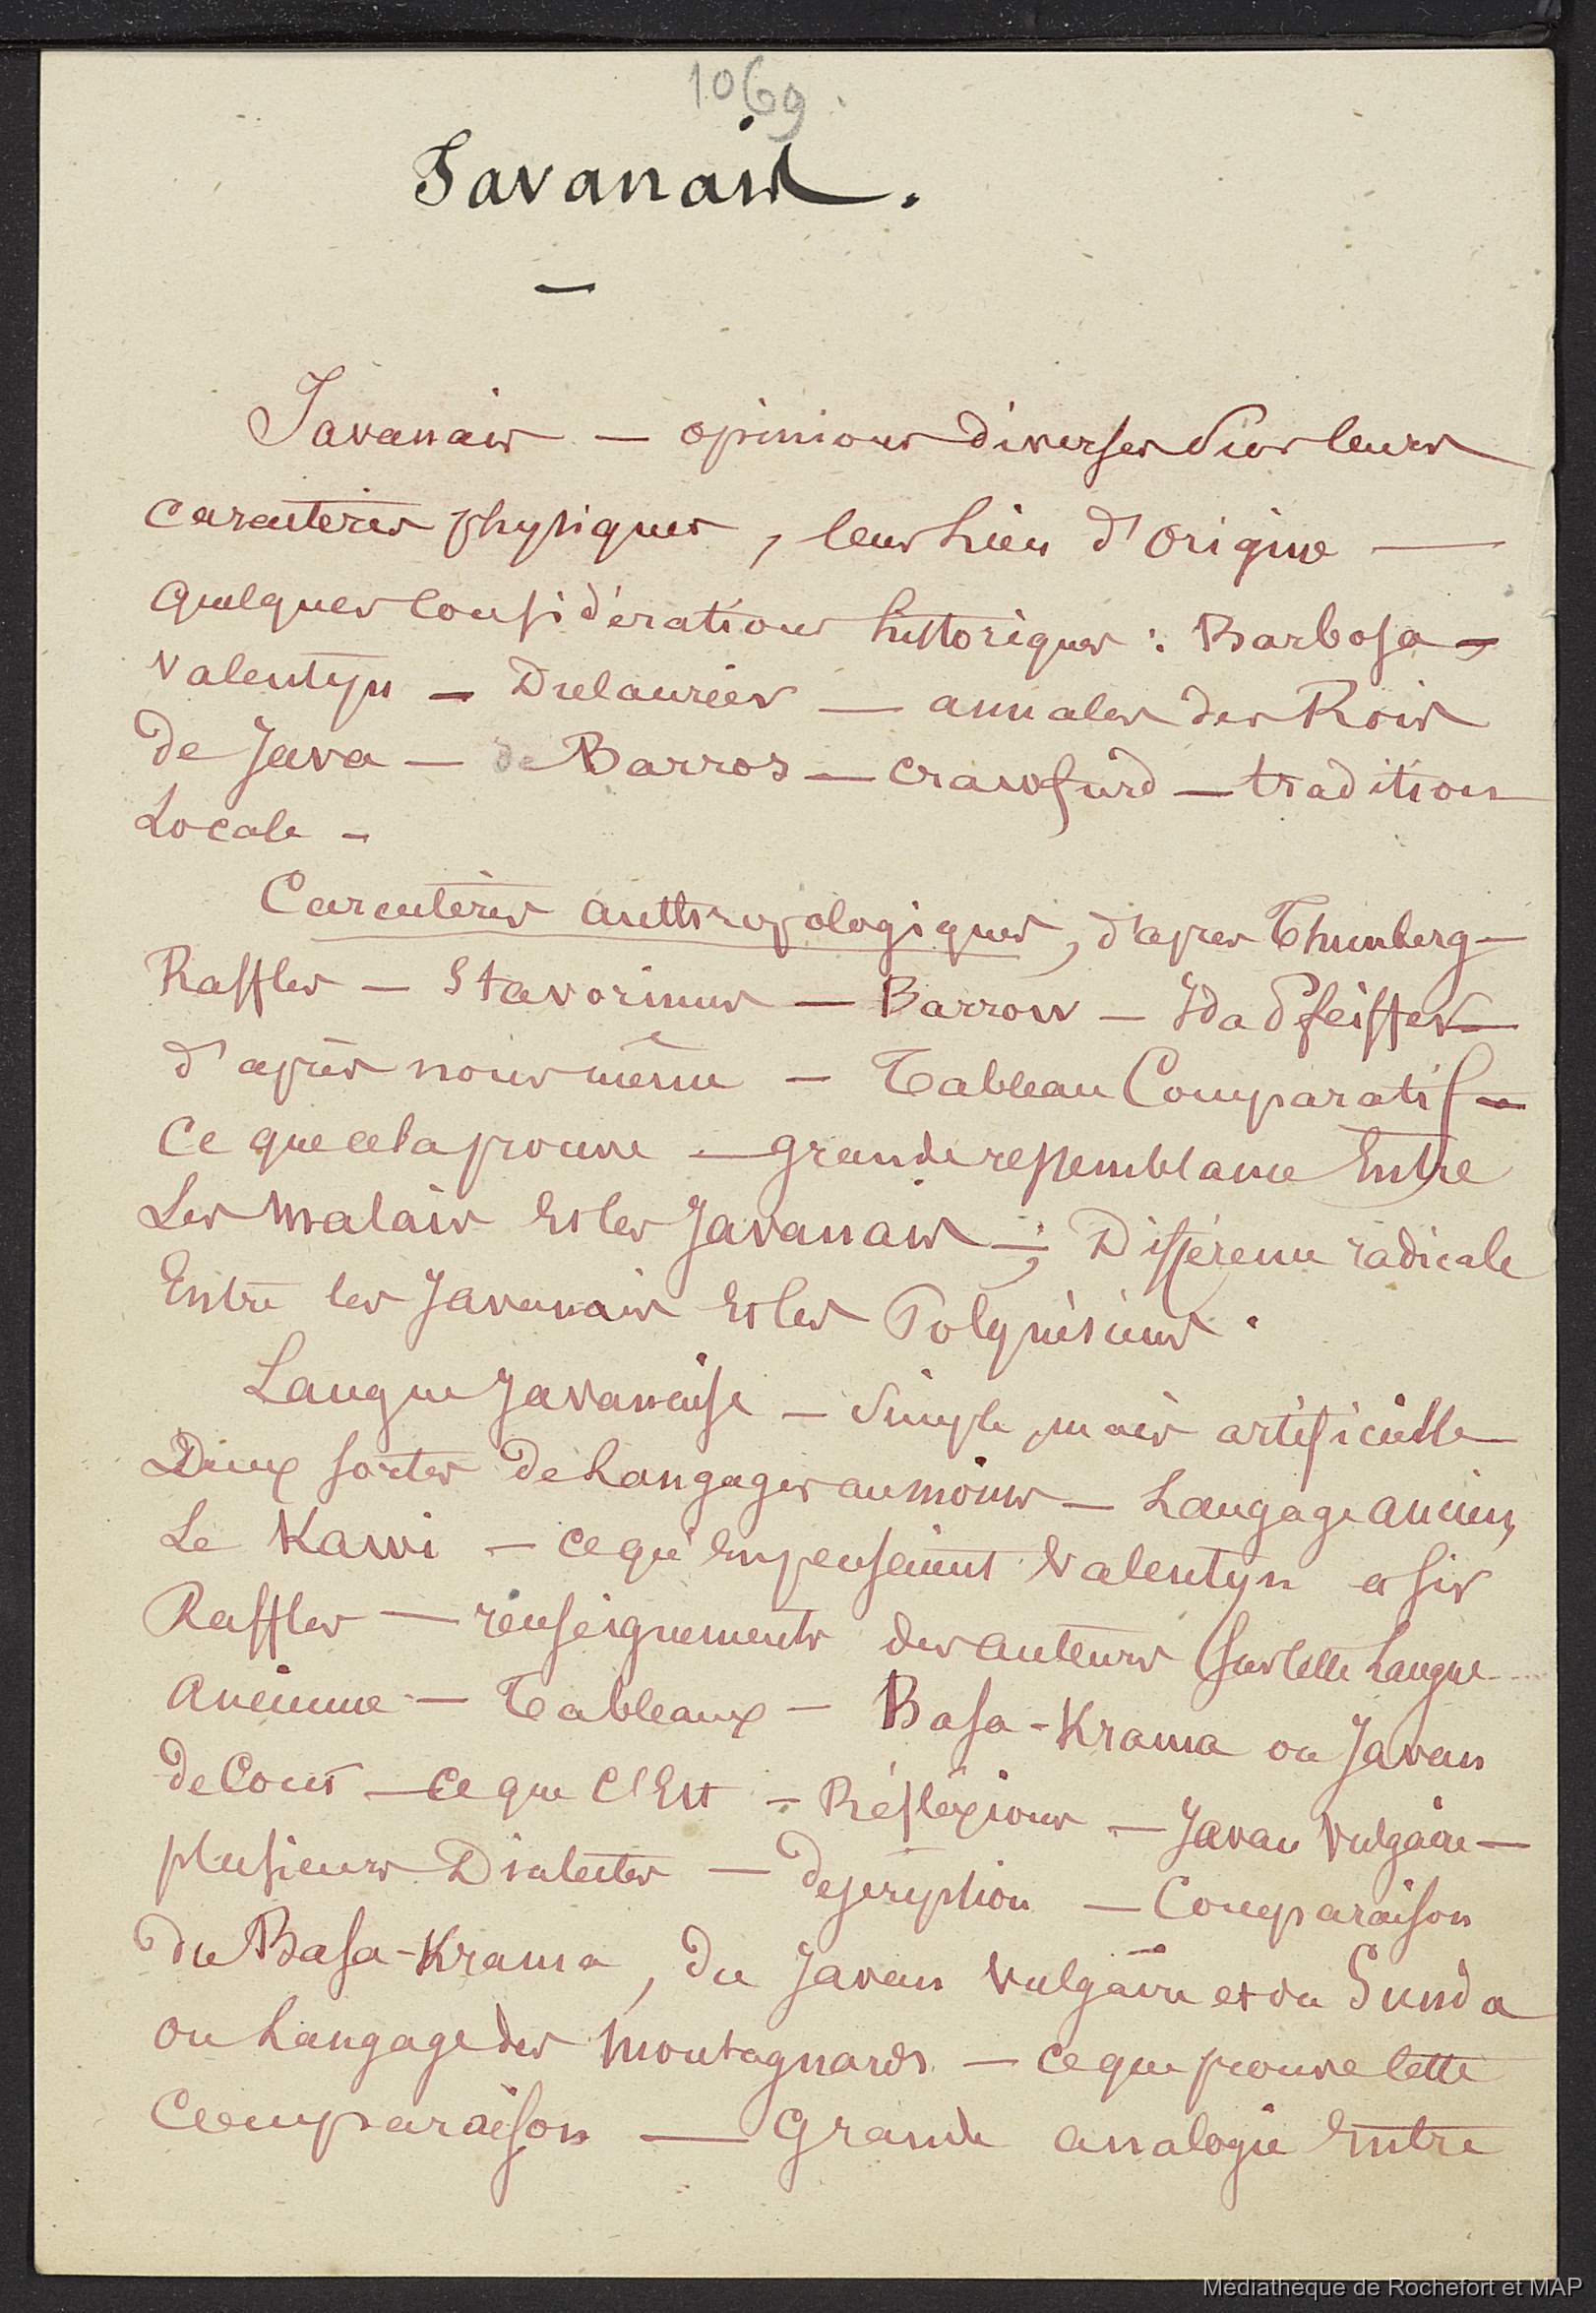 1069
Javanais.
—
Javanais — opinions diverses sur leurs
caractères physiques, leur lieu d'origine —
quelques considérations historiques : Barbosa —
Valentyn — Dulaurier — annales des Rois
de Java — de Barros — Crawfurd — tradition
Locale —
Caractères anthropologiques, d'après Thunberg —
Raffles — Stavorinus — Barrow — Ida Pfeiffer —
d'après nous même — Tableau Comparatif —
Ce que cela prouve — grande ressemblance Entre
Les Malais Et les Javanais — ; Différence radicale
Entre les Javanais Et les Polynésiens.
Langue Javanaise — Simple, mais artificielle —
Deux sortes de Langages au moins — Langage ancien,
Le Kawi — ce qu'en pensaient Valentyn et Sir
Raffles — renseignements des auteurs sur cette Langue
Ancienne — Tableaux — Basa-Krama ou Javan
de Cour — ce que c'Est — Réfléxions — Javan Vulgaire —
plusieurs Dialectes — description — Comparaison
du Basa-Krama, du Javan Vulgaire et du Sunda
ou Langage des Montagnards — ce que prouve cette
Comparaison — Grande analogie Entre
Médiathèque de Rochefort et MAP